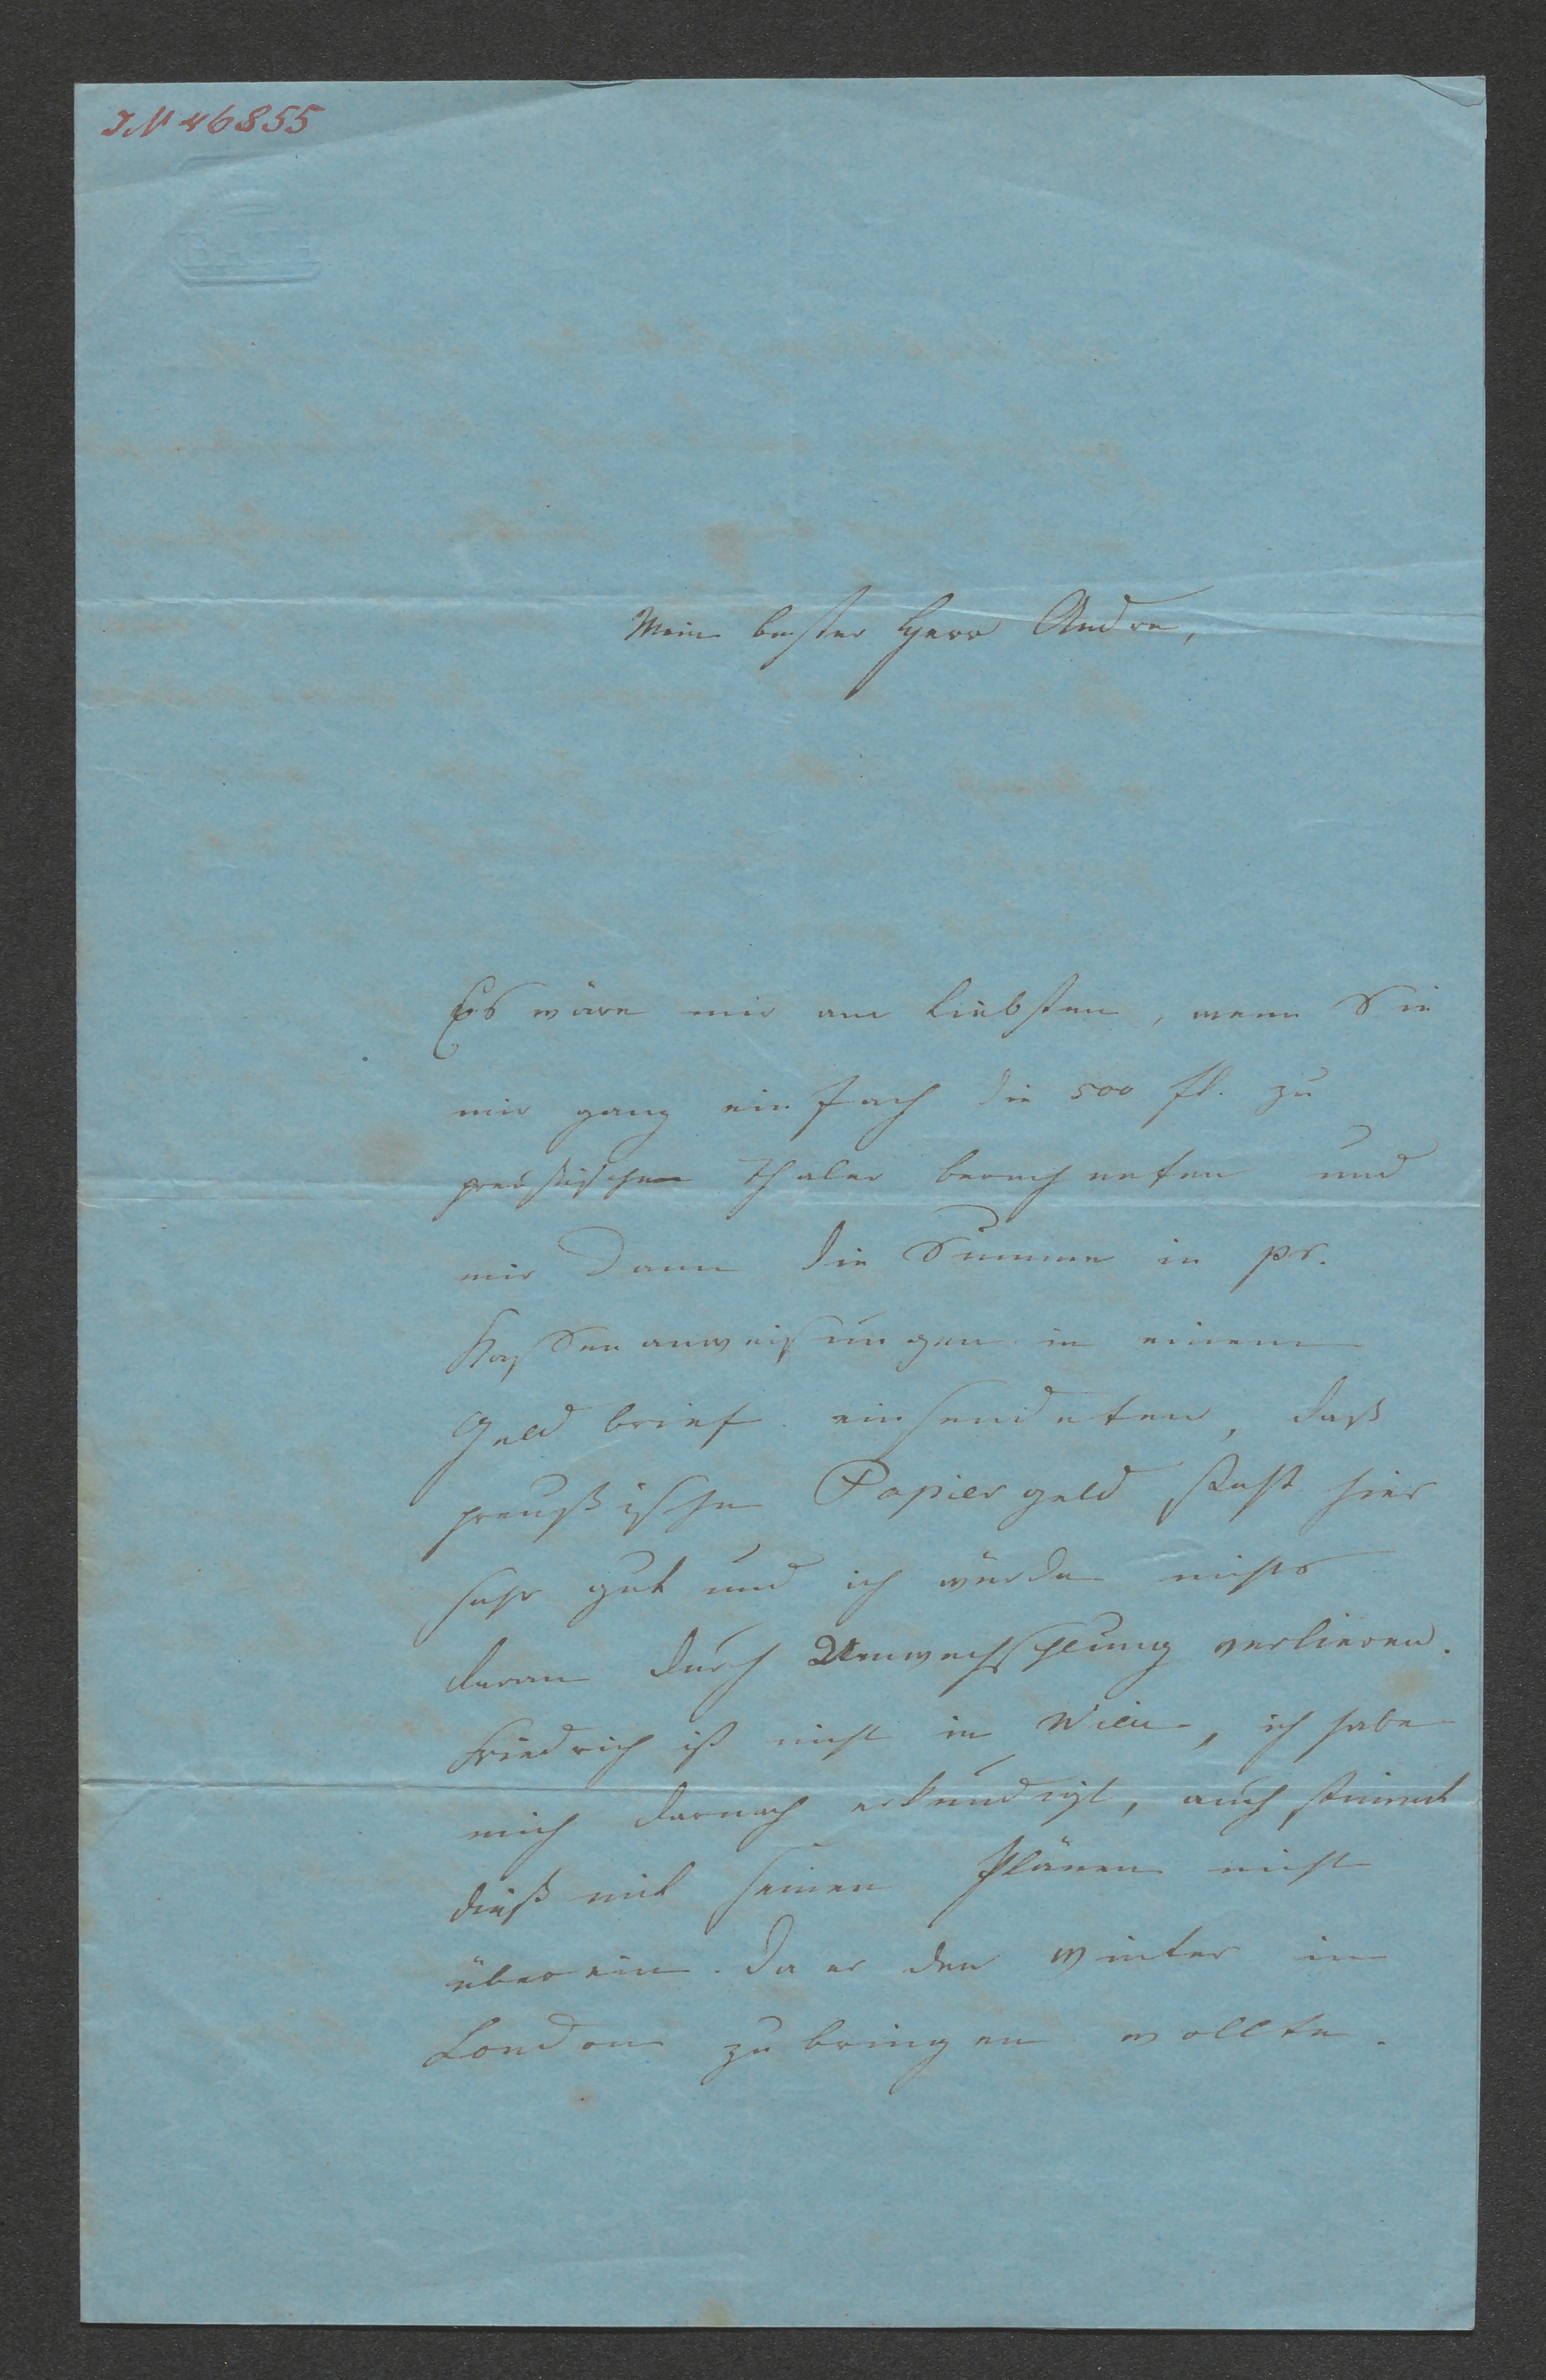 IN 46855
BATH
Mein bester Herr Andre,
Es wäre mir am liebsten, wenn Sie
mir ganz einfach die 500 fl. zu
preußischen Thaler berechneten und
mir dann die Summe in pr.
Kassenanweisungen in einem
Geldbrief einsendeten, daß
preußische Papiergeld steht hier
sehr gut und ich würde nichts
daran durch Umwechslung verlieren.
Friedrich ist nicht in Wien, ich habe
mich darnach erkundigt, auch stimmt
dieß mit seinen Plänen nicht
überein. Da er den Winter in
London zubringen wollte.